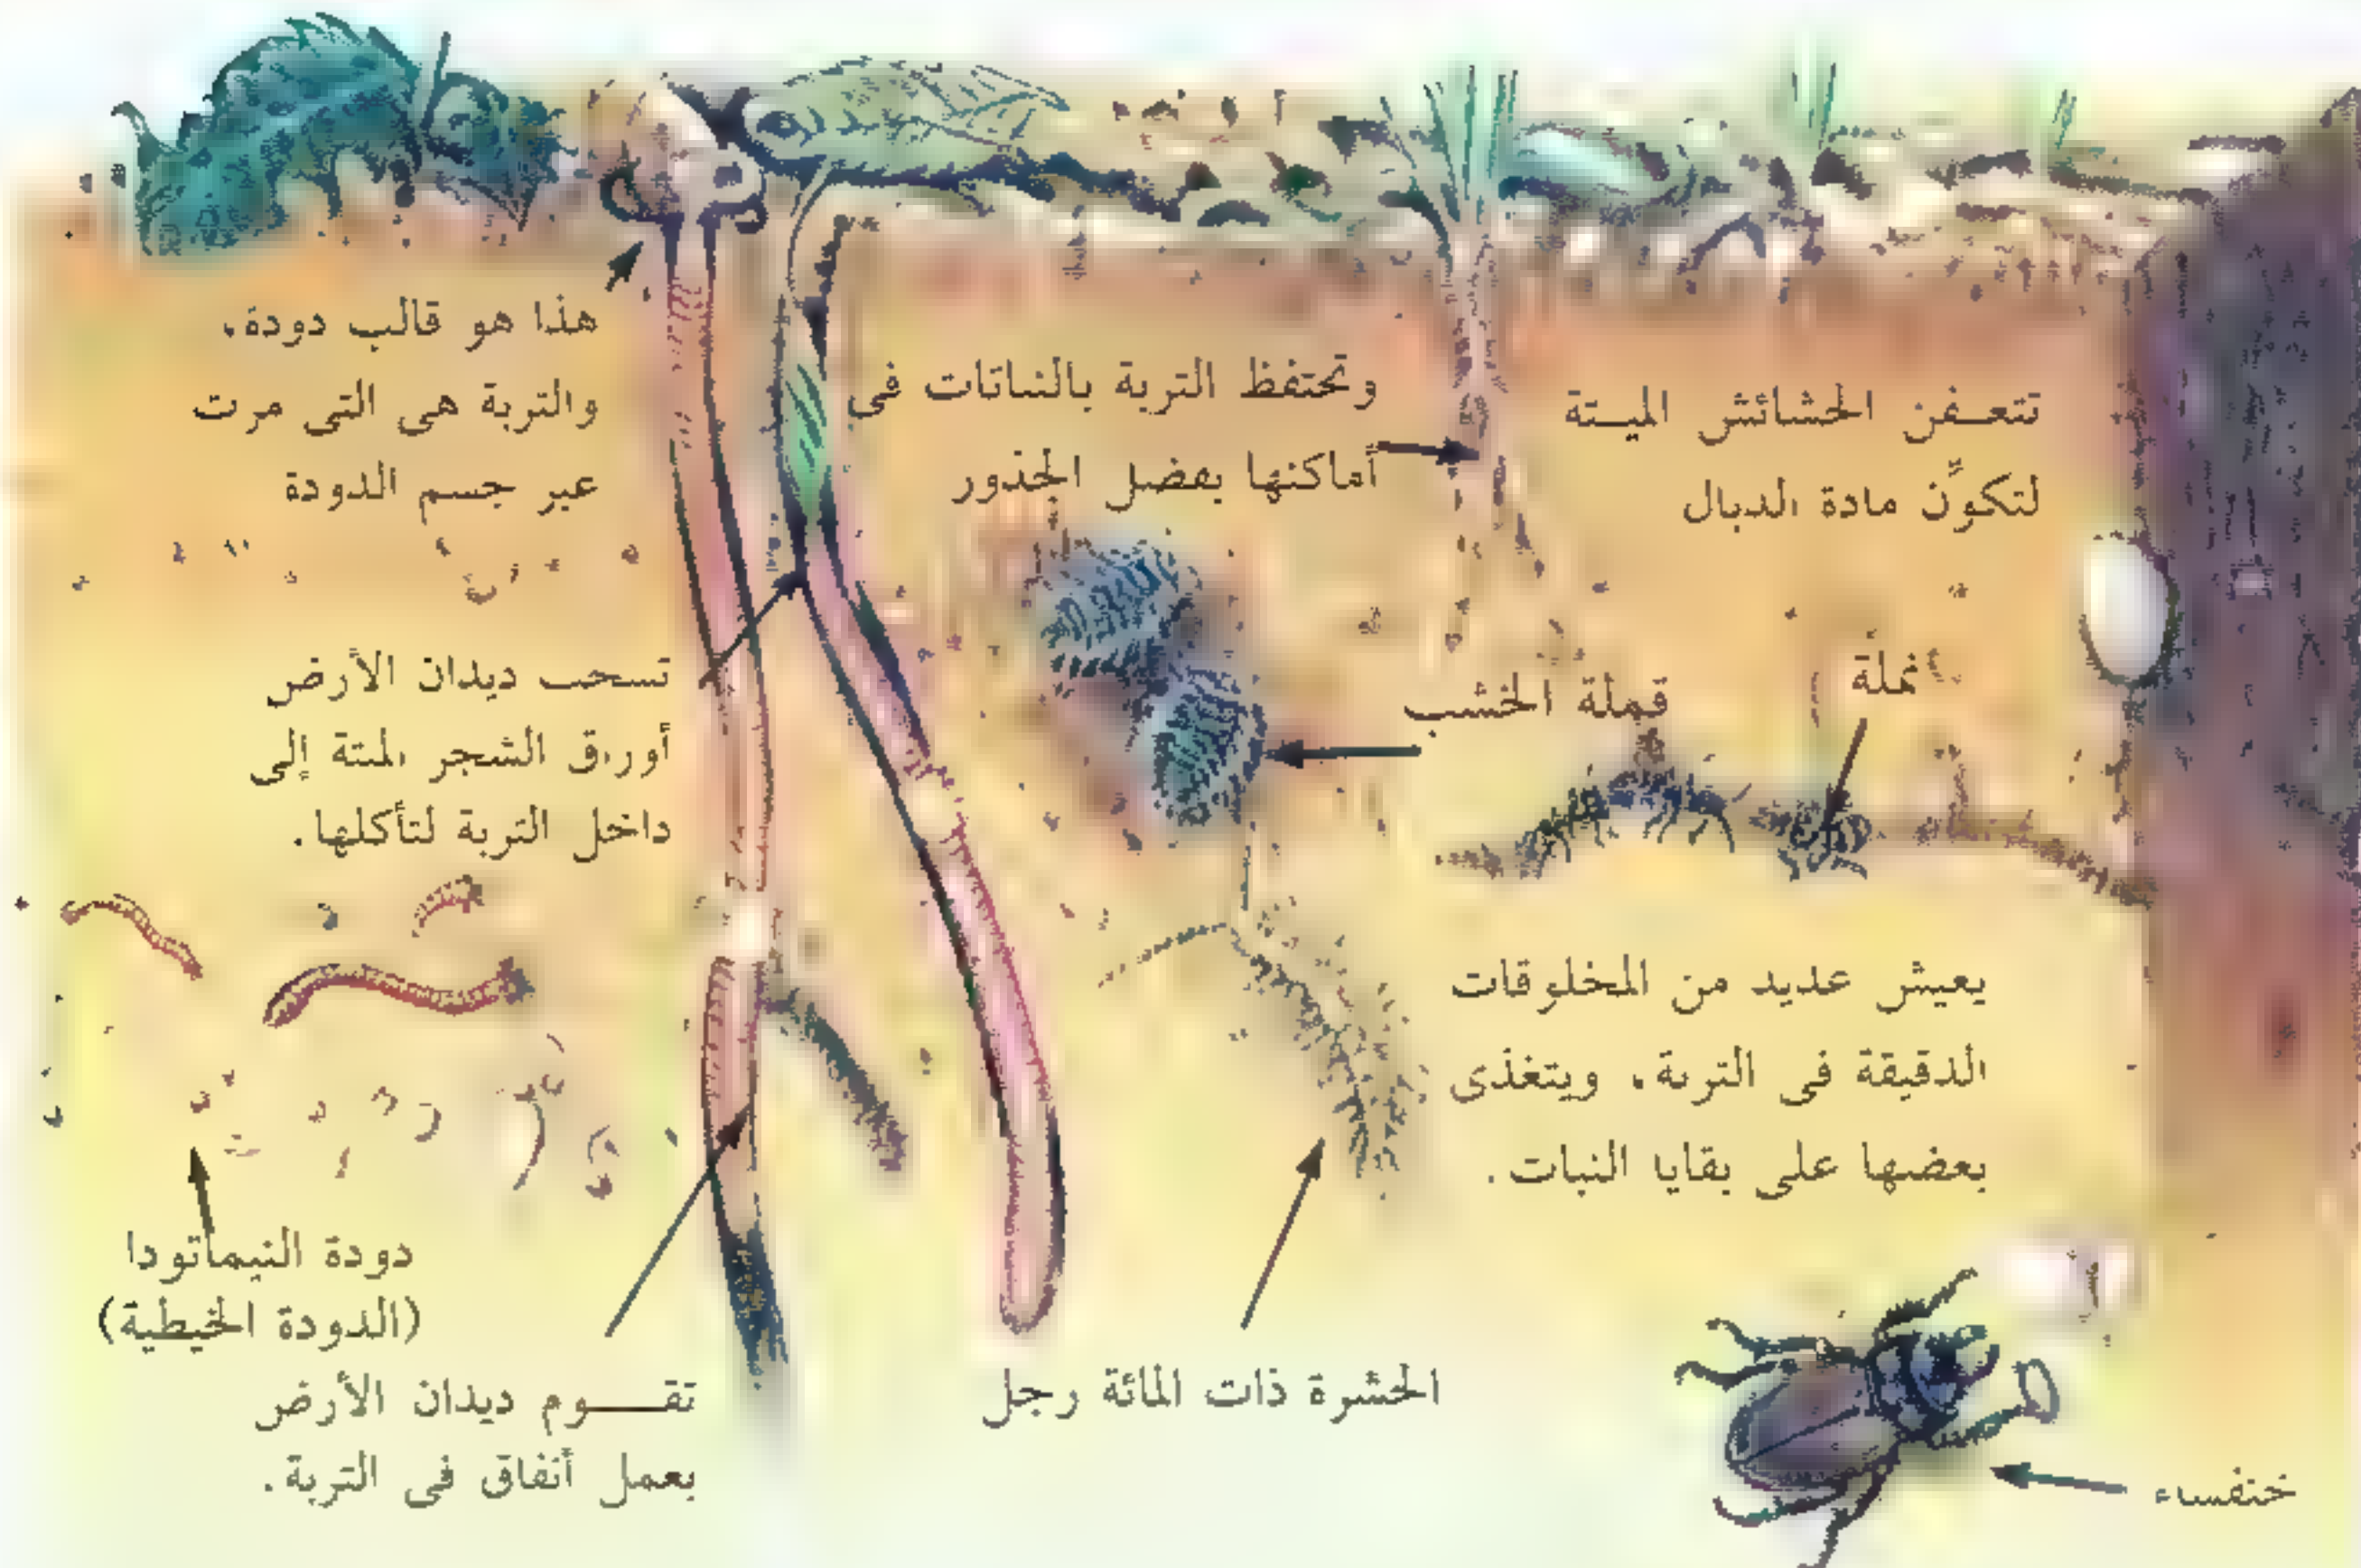 هذا هو قالب دودة،
والتربة هى التى مرت
عبر جسم الدودة
وتحتفظ التربة بالنباتات فى
أماكنها بفضل الجذور
تتعفن الحشائش الميتة
لتكوِّن مادة الدبال
تسحب ديدان الأرض
أوراق الشجر الميتة إلى
داخل التربة لتأكلها.
قملة الخشب
نملة
يعيش عديد من المخلوقات
الدقيقة فى التربة، ويتغذى
بعضها على بقايا النبات.
دودة النيماتودا
(الدودة الخيطية)
تقوم ديدان الأرض
بعمل أنفاق فى التربة.
الحشرة ذات المائة رجل
خنفساء